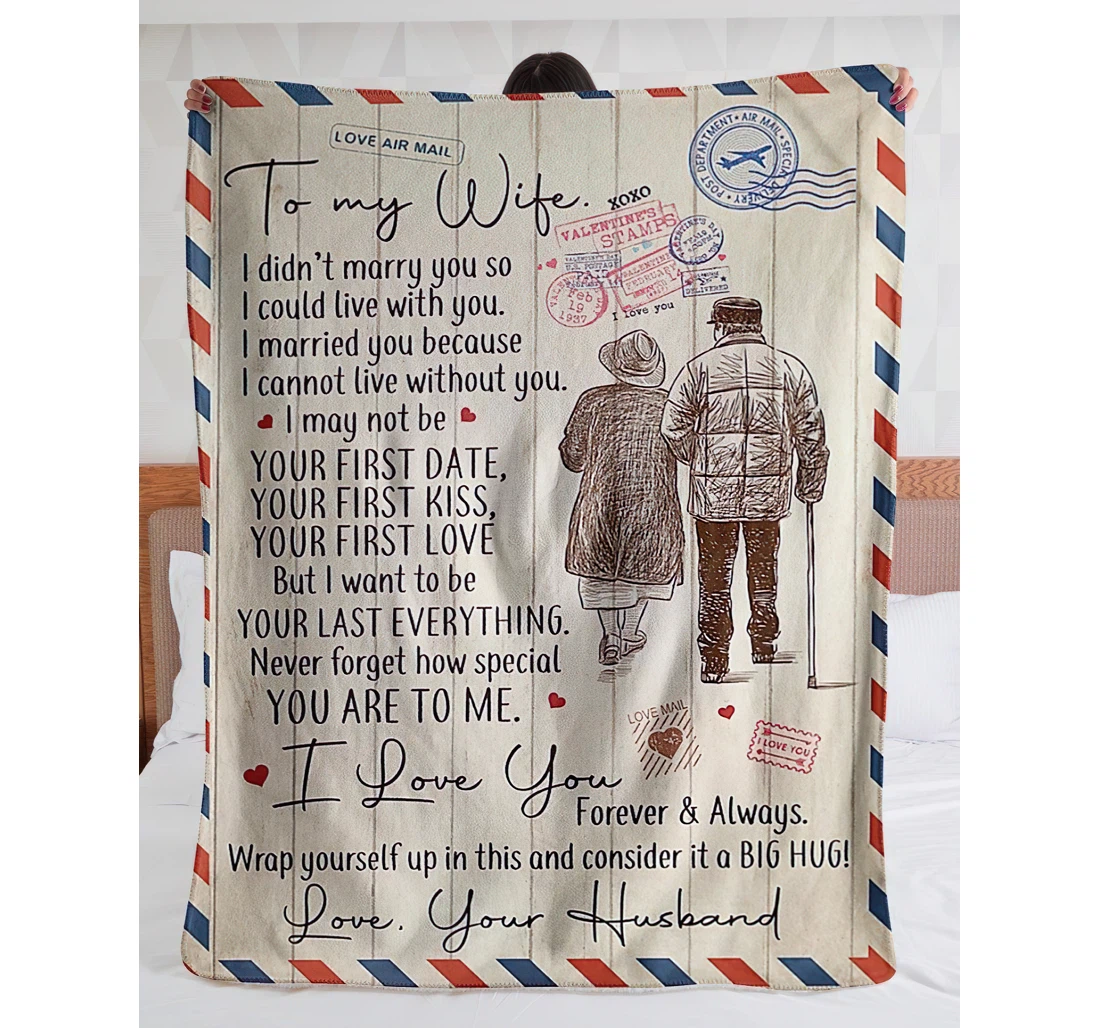 LOVE AIR MAIL
POST DEPARTMENT • AIR MAIL • SPECIAL DELIVERY •
To my Wife.
XOXO
VALENTINE'S
STAMPS
I didn't marry you so
I could live with you.
I married you because
I cannot live without you.
I may not be
YOUR FIRST DATE,
YOUR FIRST KISS,
YOUR FIRST LOVE
But I want to be
YOUR LAST EVERYTHING.
Never forget how special
YOU ARE TO ME.
I Love You
Forever & Always.
Wrap yourself up in this and consider it a BIG HUG!
Love, Your Husband
VALENTINE'S DAY
U.S. POSTAGE
Feb
19
1937
VALENTINE
FEBRUARY 14
DELIVERED
I love you
LOVE MAIL
I LOVE YOU